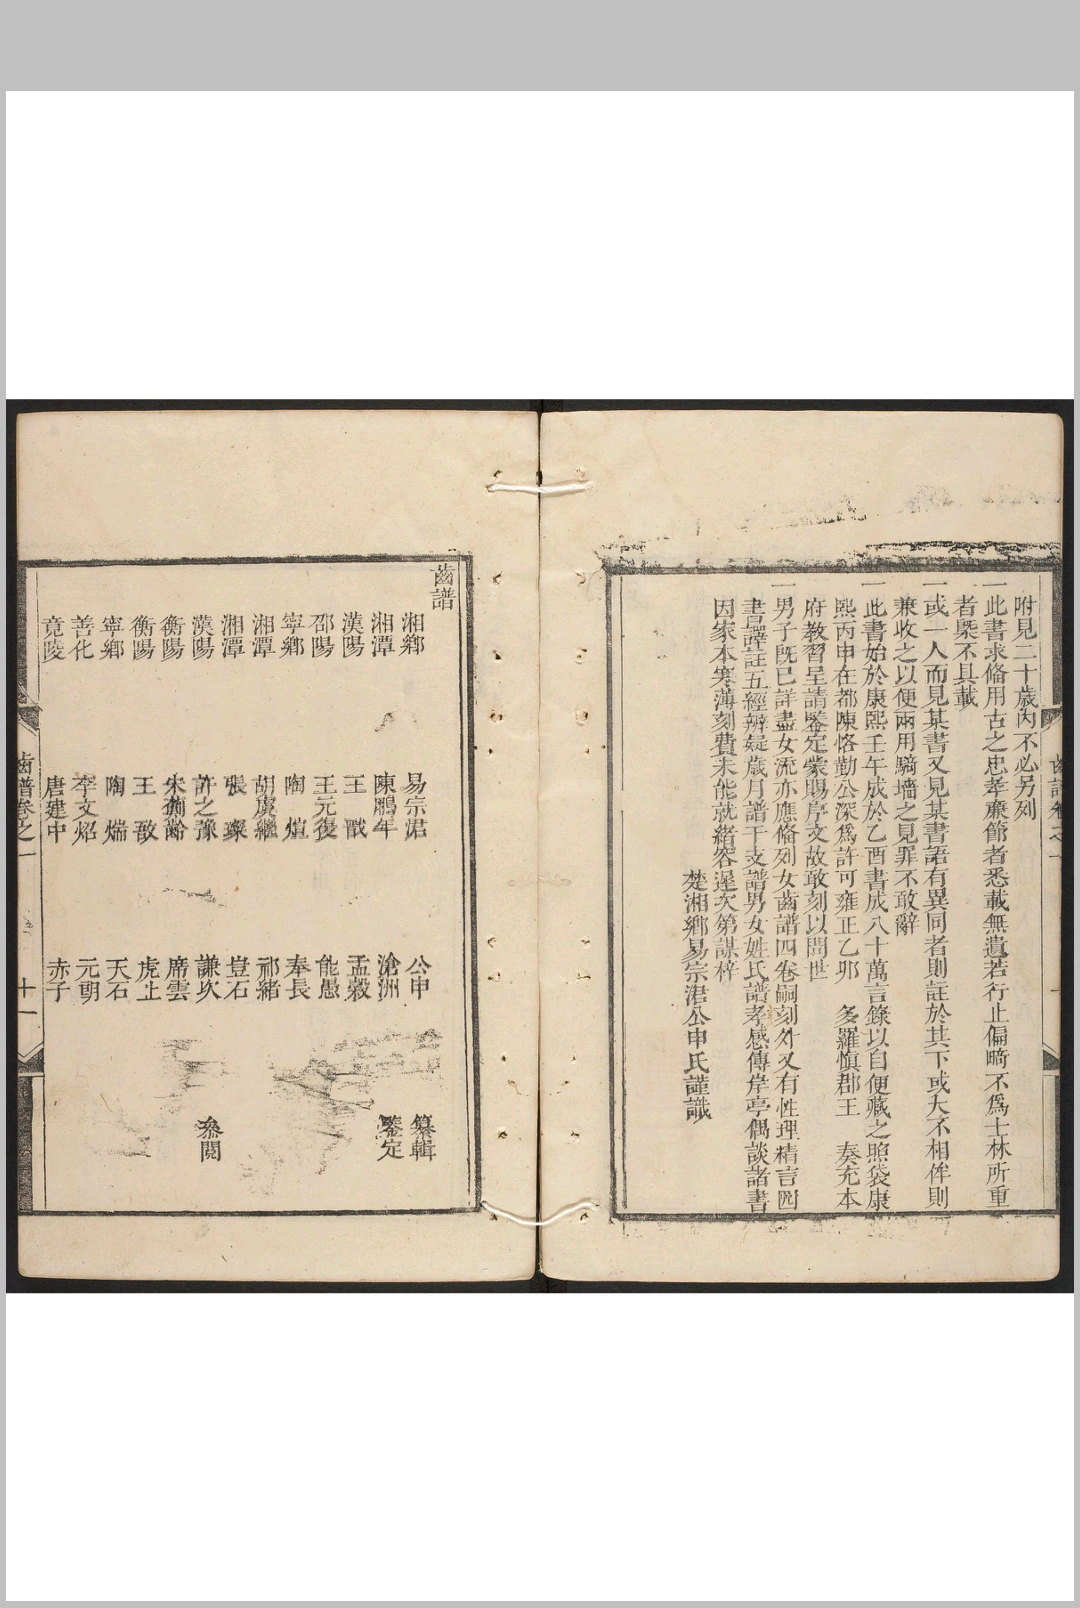 附見二十歲內不必另列
一此書求偹用古之忠孝亷節者悉載無遺若行止偏畸不爲士林所重
者槩不具載
一或一人而見某書又見某書語有異同者則註於其下或大不相侔則
兼收之以便兩用騎墻之見罪不敢辭
一此書始於康熙壬午成於乙酉書成八十萬言錄以自便藏之照袋康
熙丙申在都陳恪勤公深爲許可雍正乙夘 多羅愼郡王 奏充本
府教習呈請鑒定蒙賜序文故敢刻以問世
一男子旣已詳盡女流亦應偹列女齒譜四卷嗣刻外又有性理精言四
書譯註五經辨疑歲月譜干支譜男女姓氏譜孝感傳岸亭偶談諸書
因家本寒薄刻費未能就緒容遲次第謀梓
楚湘鄉易宗涒公申氏謹識
齒譜卷之一
齒譜
湘鄉 易宗涒 公申 纂輯
湘潭 陳鵬年 滄洲 鑒定
漢陽 王戩 孟榖
邵陽 王元復 能愚
寧鄉 陶煊 奉長
湘潭 胡虞繼 祁緒
湘潭 張璨 豈石
漢陽 許之豫 謙次 叅閱
衡陽 朱蘅齡 席雲
衡陽 王敔 虎止
寧鄉 陶煓 天石
善化 李文炤 元朗
竟陵 唐建中 赤子
齒譜卷之一 十一